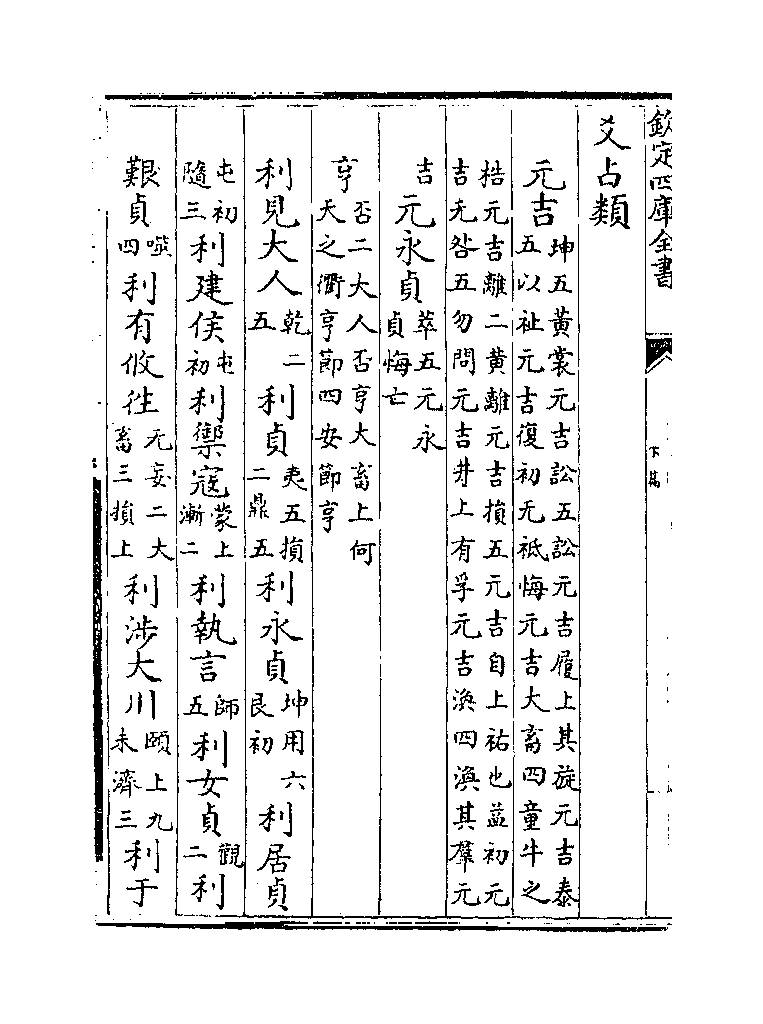 欽定四庫全書
下篇
爻占類
元吉坤五黃裳元吉訟五訟元吉履上其旋元吉泰
五以祉元吉復初无祗悔元吉大畜四童牛之
梏元吉離二黃離元吉損五元吉自上祐也益初元
吉无咎五勿問元吉井上有孚元吉渙四渙其羣元
吉元永貞萃五元永貞悔亡
亨否二大人否亨大畜上何天之衢亨節四安節亨
利見大人乾二五利貞夷五損二鼎五利永貞坤用六艮初利居貞
屯初隨三利建侯屯初利禦寇蒙上漸二利執言師五利女貞觀二利
艱貞噬四利有攸往无妄二大畜三損上利涉大川頤上九未濟三利于